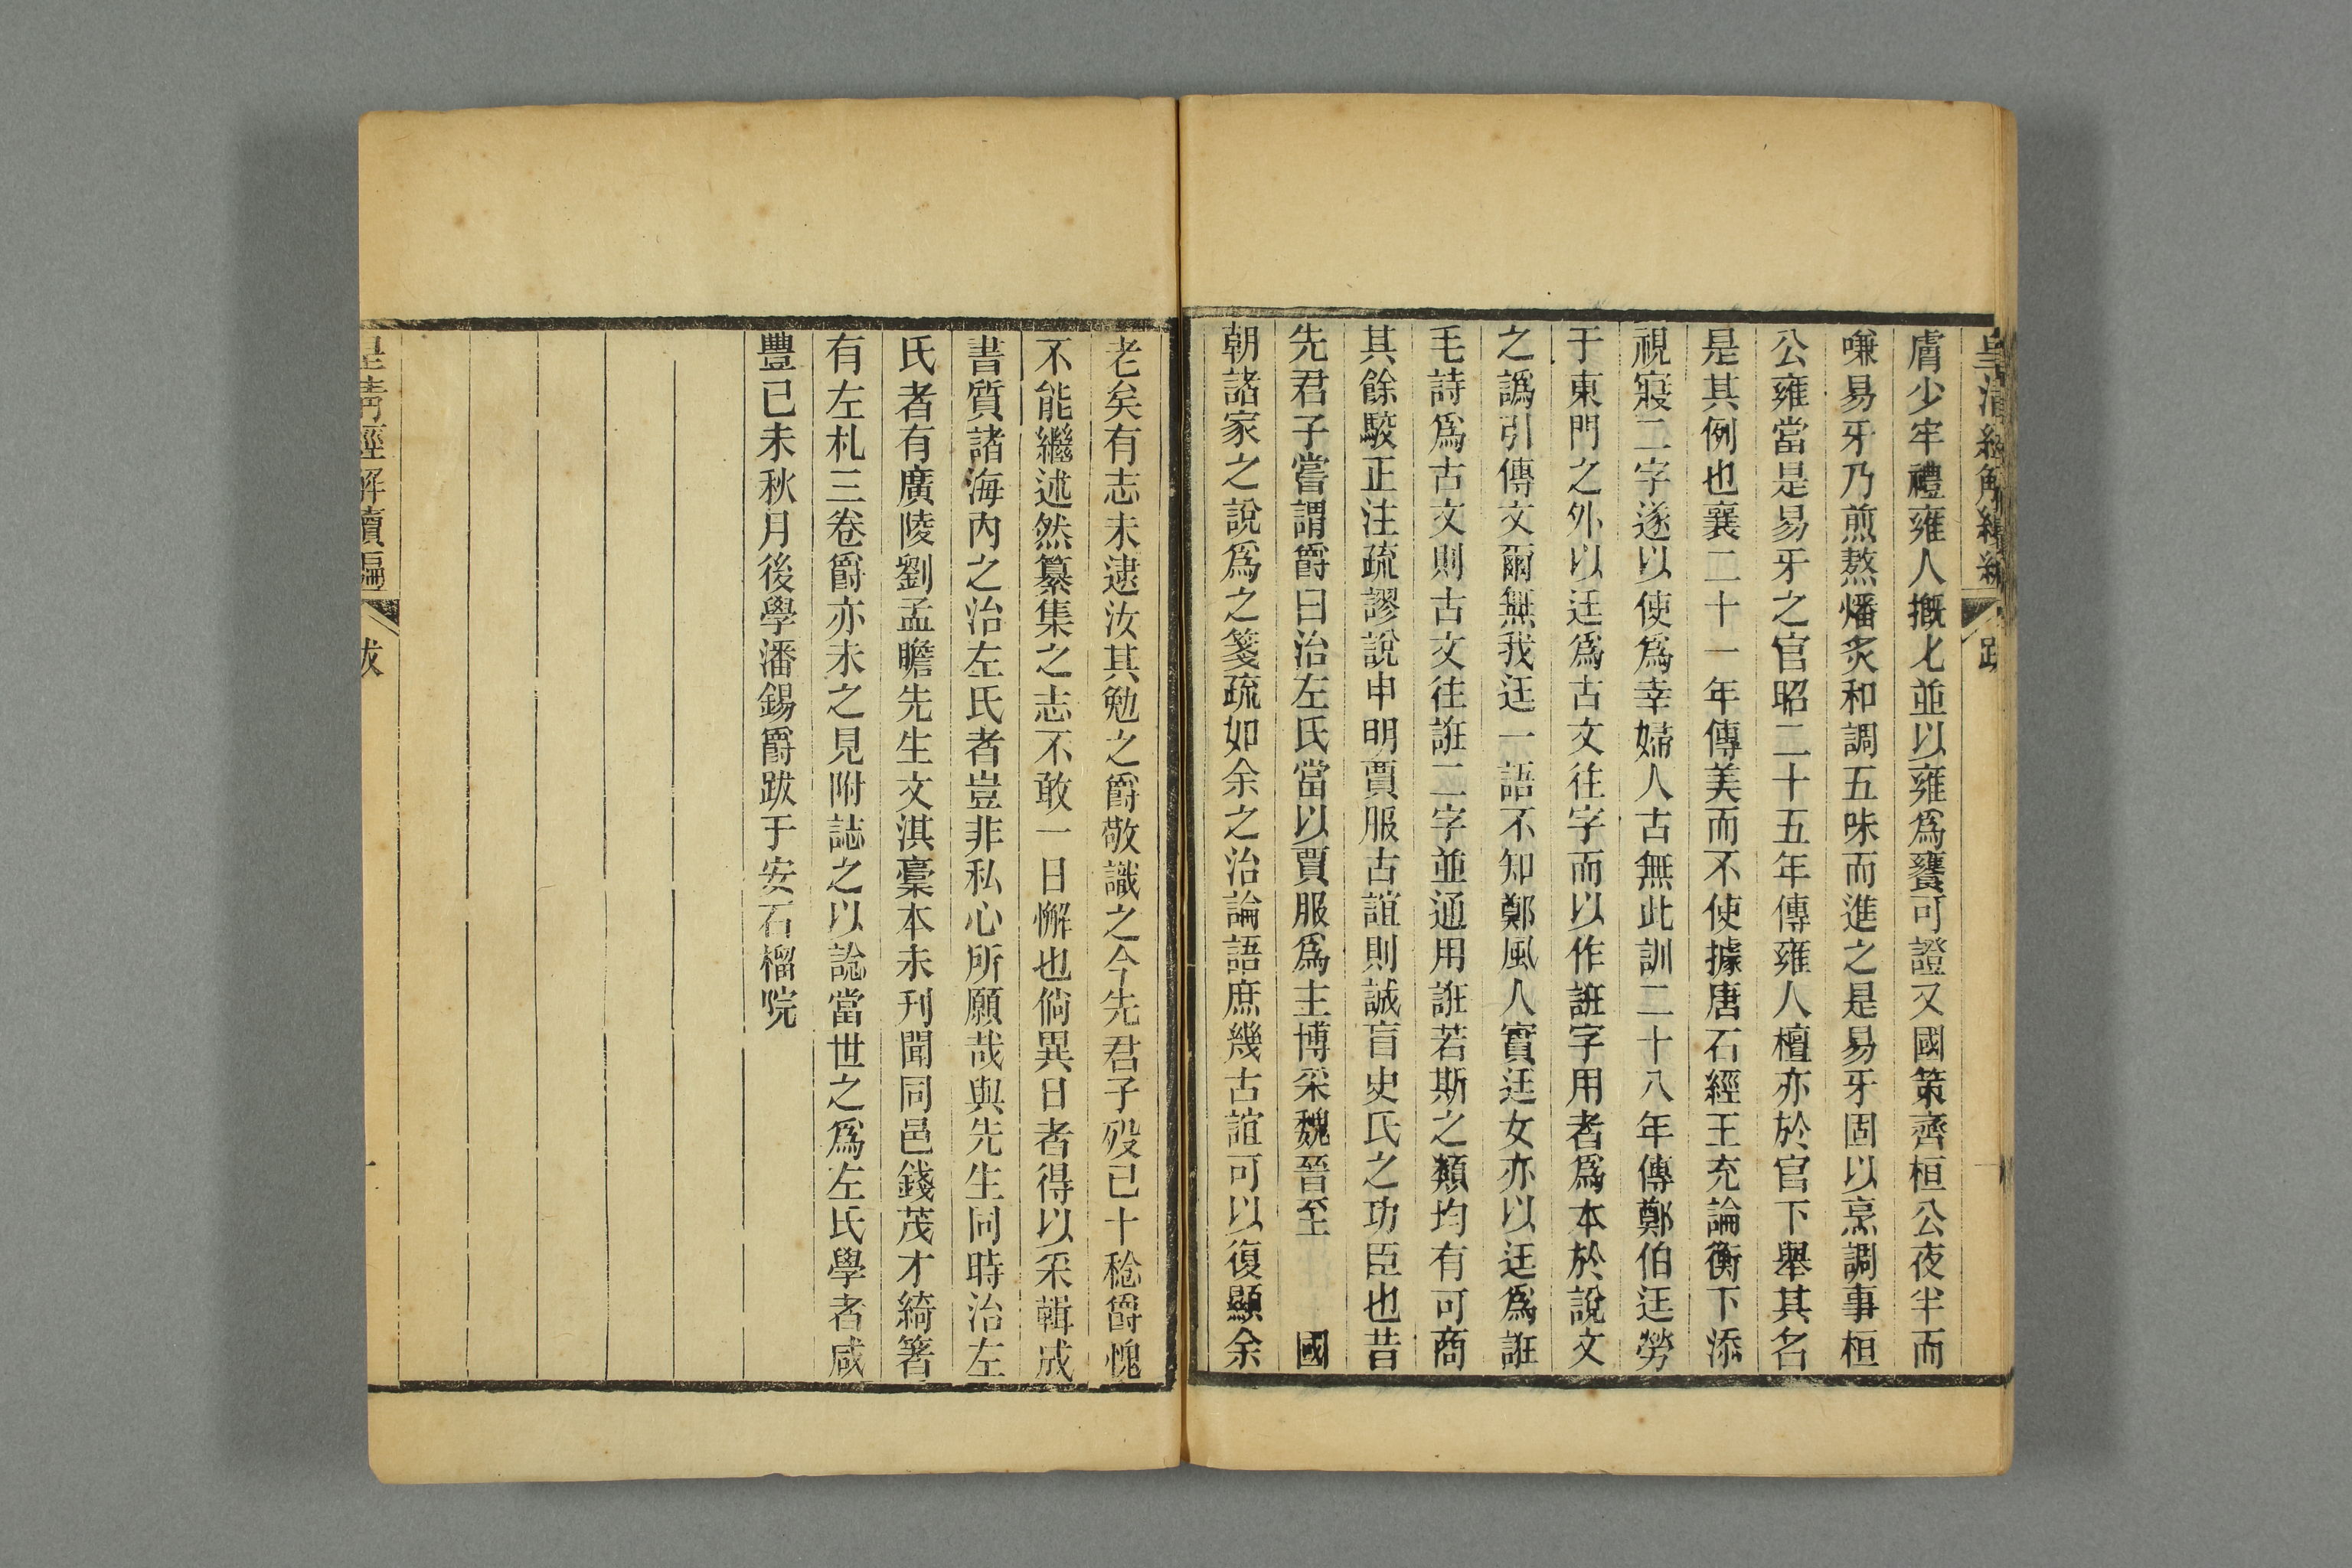 皇清經解續編 跋
膚少牢禮雍人摡匕並以雍爲饔可證又國策齊桓公夜半而
嗛易牙乃煎熬燔炙和調五味而進之是易牙固以烹調事桓
公雍當是易牙之官昭二十五年傳雍人檀亦於官下舉其名
是其例也襄二十一年傳美而不使據唐石經王充論衡下添
視寢二字遂以使爲幸婦人古無此訓二十八年傳鄭伯迋勞
于東門之外以迋爲古文往字而以作誑字用者爲本於說文
之譌引傳文爾無我迋一語不知鄭風人實迋女亦以迋爲誑
毛詩爲古文則古文往誑二字並通用誑若斯之類均有可商
其餘駮正注疏謬說申明賈服古誼則誠盲史氏之功臣也昔
先君子嘗謂爵曰治左氏當以賈服爲主博采魏晉至 國
朝諸家之說爲之箋疏如余之治論語庶幾古誼可以復顯余
老矣有志未逮汝其勉之爵敬識之今先君子歿已十稔爵愧
不能繼述然纂集之志不敢一日懈也倘異日者得以采輯成
書質諸海內之治左氏者豈非私心所願哉與先生同時治左
氏者有廣陵劉孟瞻先生文淇稾本未刊聞同邑錢茂才綺箸
有左札三卷爵亦未之見附誌之以諗當世之爲左氏學者咸
豐己未秋月後學潘錫爵跋于安石榴院
皇清經解續編 跋 一